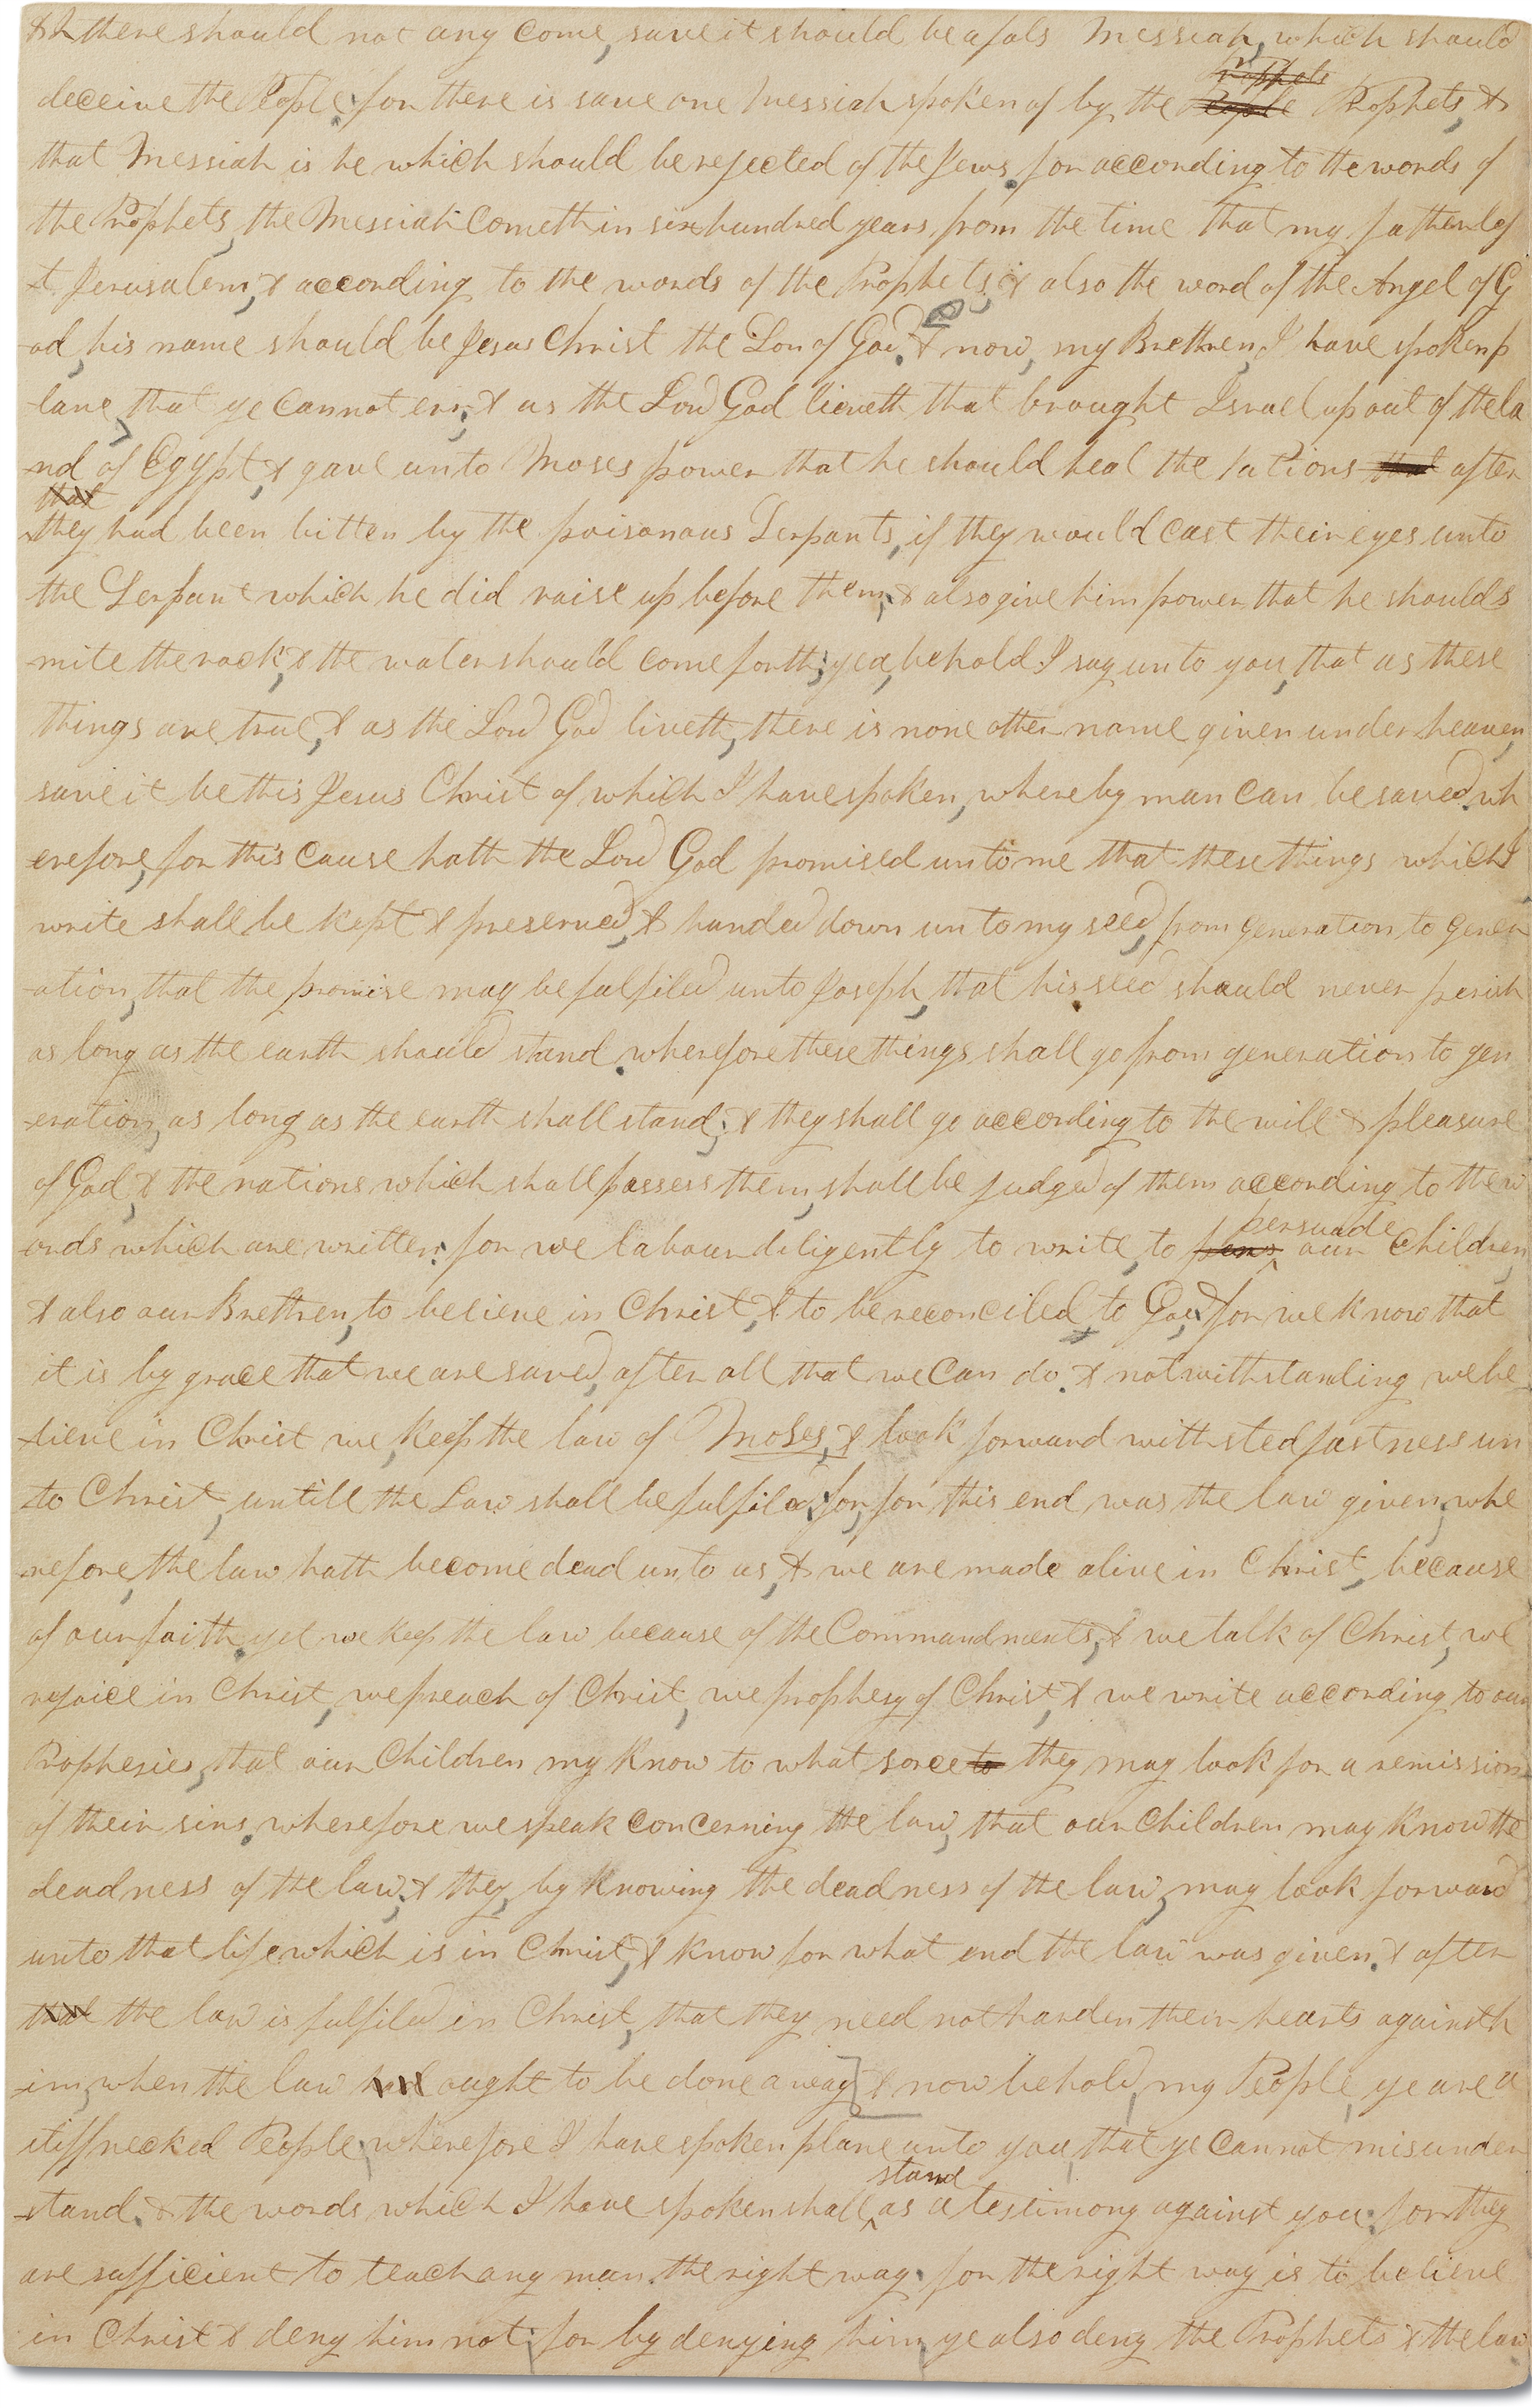 &A there should not any come, save it should be a fals Messiah, which should
deceive the People. for there is save one Messiah spoken of by the People Prophets Prophets, &
that Messiah is he which should be rejected of the Jews. for according to the words of
the Prophets, the Messiah Cometh in six hundred years from the time that my father lef
-t Jerusalem; & according to the words of the Prophets; & also the word of the Angel of G
-od, his name should be Jesus Christ the Son of God. & now, my Brethren, I have spoken p
-lane, that ye cannot err; & as the Lord God liveth that brought Israel up out of the la
-nd of Egypt, & gave unto Moses power that he should heal the Nations that after
that
they had been bitten by the poisonous Serpants, if they would cast their eyes unto
the Serpant which he did raise up before them, & also give him power that he should s
-mite the rock, & the water should come forth; yea, behold I say unto you, that as these
things are true, & as the Lord God liveth, there is none other name given under heaven,
save it be this Jesus Christ of which I have spoken, whereby man can be saved. wh
-erefore, for this cause hath the Lord God promised unto me that these things which I
write shall be kept & preserved, & handed down unto my seed, from generation to gener
-ation, that the promise may be fulfiled unto Joseph, that his seed should never perish
as long as the earth should stand. wherefore these things shall go from generation to gen
-eration, as long as the earth shall stand; & they shall go according to the will & pleasure
of God, & the nations which shall possess them, shall be judged of them according to the w
-ords which are written: for we labour diligently to write, to pers persuade our Children,
& also our Brethren, to believe in Christ, & to be reconciled to God; for we know that
it is by grace that we are saved, after all that we Can do. & notwithstanding we be
-lieve in Christ we, keep the law of Moses, & look forward with stedfastness un
-to Christ, untill the Law shall be fulfiled; for, for this end was the law given, whe
-refore, the law hath become dead unto us, & we are made alive in Christ, because
of our faith. yet we keep the law because of the Commandments, & we talk of Christ, we
rejoice in Christ, we preach of Christ, we prophesy of Christ, & we write according to our
Prophesies, that our Children my know to what sorce to they may look for a remission
of their sins. wherefore we speak concerning the law, that our Children may know the
deadness of the law; & they, by knowing the deadness of the law, may look forward
unto that life which is in Christ, & know for what end the law was given. & after
that the law is fulfiled in Christ, that they need not harden their hearts against h
-im, when the law had ought to be done away] & now behold, my People, ye are a
stiffnecked People, wherefore I have spoken plane unto you, that ye Cannot misunder
-stand. & the words which I have spoken shall stand as a testimony against you: for they
are sufficient to teach any man the right way. for the right way is to believe
in Christ & deny him not; for by denying him, ye also deny the Prophets & the law